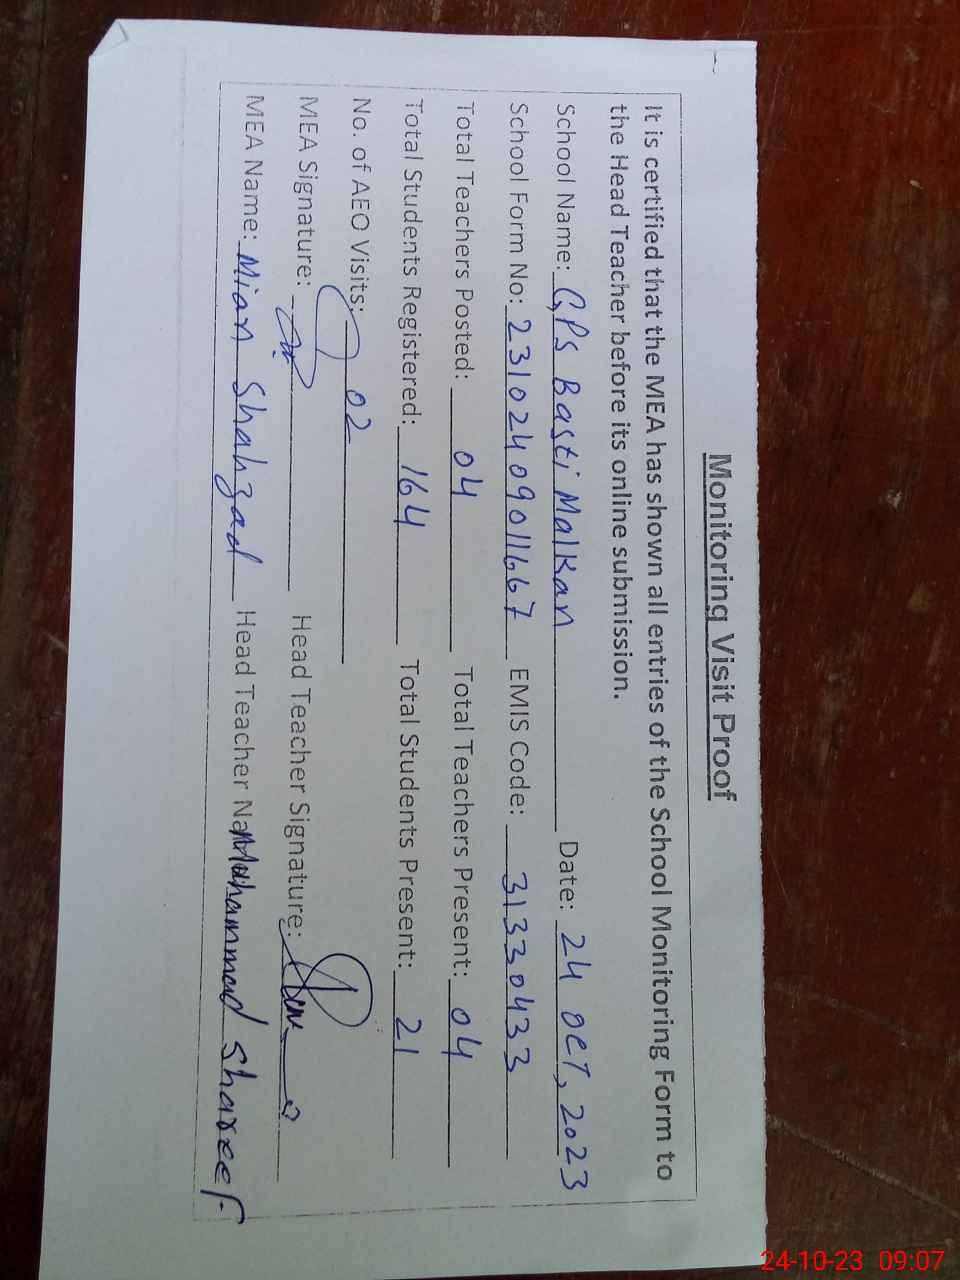 Monitoring Visit Proof
It is certified that the MEA has shown all entries of the School Monitoring Form to
the Head Teacher before its online submission.
School Name: GPS Basti Malkan Date: 24 OCT, 2023
School Form No: 23102409011667 EMIS Code: 31330433
Total Teachers Posted: 04 Total Teachers Present: 04
Total Students Registered: 164 Total Students Present: 21
No. of AEO Visits: 02
MEA Signature: Head Teacher Signature:
MEA Name: Mian Shahzad Head Teacher Na Muhammad Shareef.
24-10-23 09:07